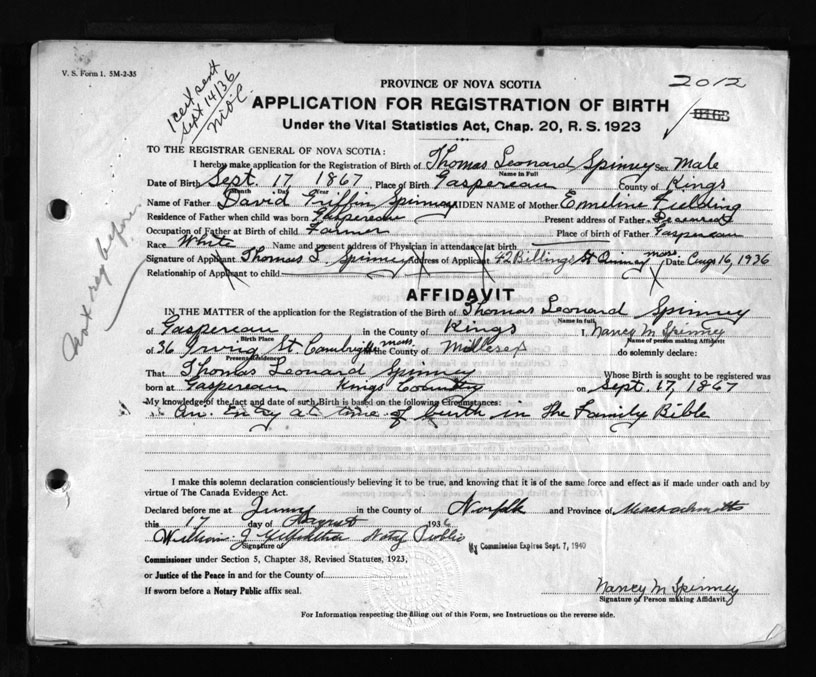 V. S. Form 1. 5M-2-35
1 cert sent
Sept 14/36
PROVINCE OF NOVA SCOTIA
2012
APPLICATION FOR REGISTRATION OF BIRTH
Under the Vital Statistics Act, Chap. 20, R. S. 1923
TO THE REGISTRAR GENERAL OF NOVA SCOTIA:
I hereby make application for the Registration of Birth of Thomas Leonard Spinney Sex Male
Name in Full
Date of Birth Sept. 17, 1867 Place of Birth Gaspereau County of Kings
Month Day Year
Name of Father David Griffin Spinney MAIDEN NAME of Mother Emeline Fielding
Residence of Father when child was born Gaspereau Present address of Father Deceased
Occupation of Father at Birth of child Farmer Place of birth of Father Gaspereau
Race White Name and present address of Physician in attendance at birth
Signature of Applicant Thomas L. Spinney Address of Applicant 42 Billings St Quincy Mass. Date Aug 16, 1936
Relationship of Applicant to child
Not reg before
AFFIDAVIT
IN THE MATTER of the application for the Registration of the Birth of Thomas Leonard Spinney
Name in full
of Gaspereau in the County of Kings I, Nancy M Spinney
Birth Place Name of person making Affidavit
of 36 Irving St. Cambridge Mass. in the County of Middlesex do solemnly declare:
Present Residence
That Thomas Leonard Spinney Whose Birth is sought to be registered was
born at Gaspereau Kings Country on Sept. 17, 1867
My knowledge of the fact and date of such Birth is based on the following Circumstances:
An. Entry at time of birth in The Family Bible
I make this solemn declaration conscientiously believing it to be true, and knowing that it is of the same force and effect as if made under oath and by
virtue of The Canada Evidence Act.
Declared before me at in the County of Norfolk and Province of Massachusetts
this 17 day of August 1936
William J Notary Public
My Commission Expires Sept. 7, 1940
Signature of
Commissioner under Section 5, Chapter 38, Revised Statutes, 1923,
or Justice of the Peace in and for the County of
Nancy M Spinney
If sworn before a Notary Public affix seal.
Signature of Person making Affidavit
For Information respecting the filling out of this Form, see Instructions on the reverse side.